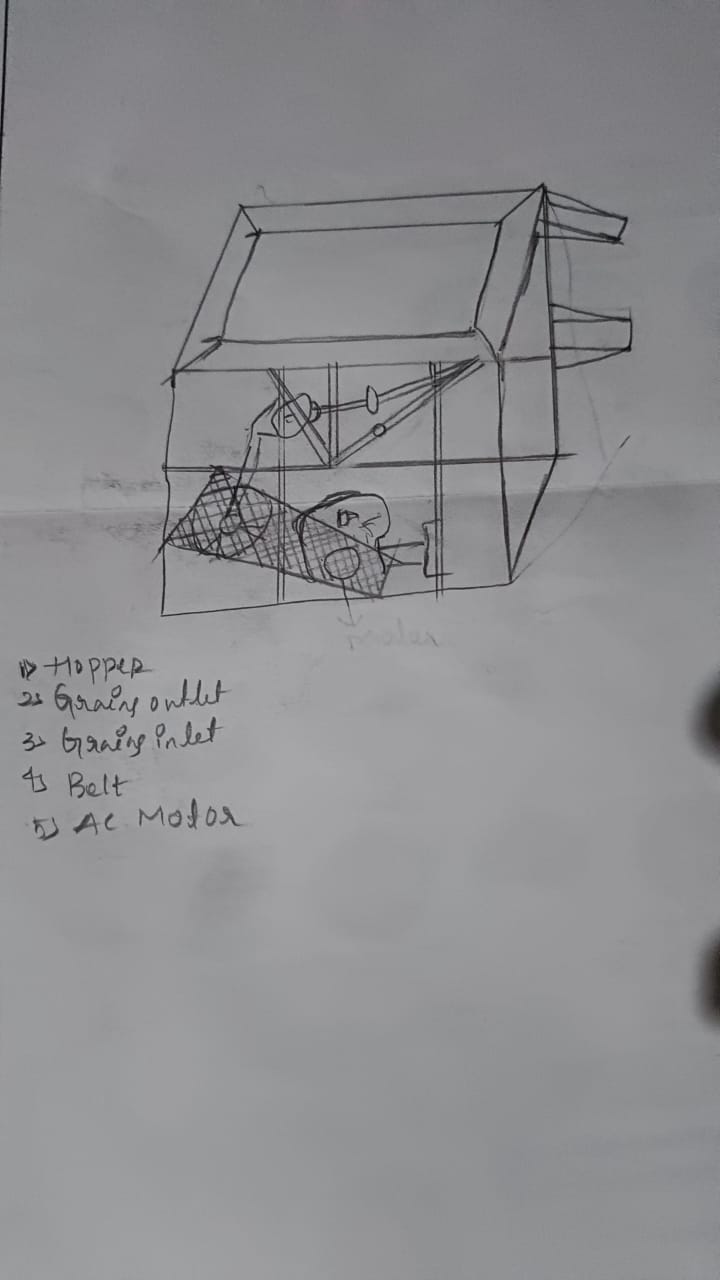 1) Hopper
2) Grains outlet
3) Grains inlet
4) Belt
5) AC Motor